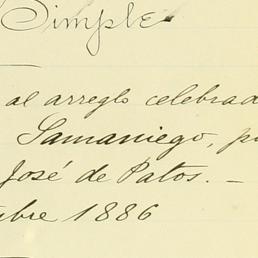 Simple
al arreglo celebrad
Samaniego, p
José de Patos. —
bre 1886